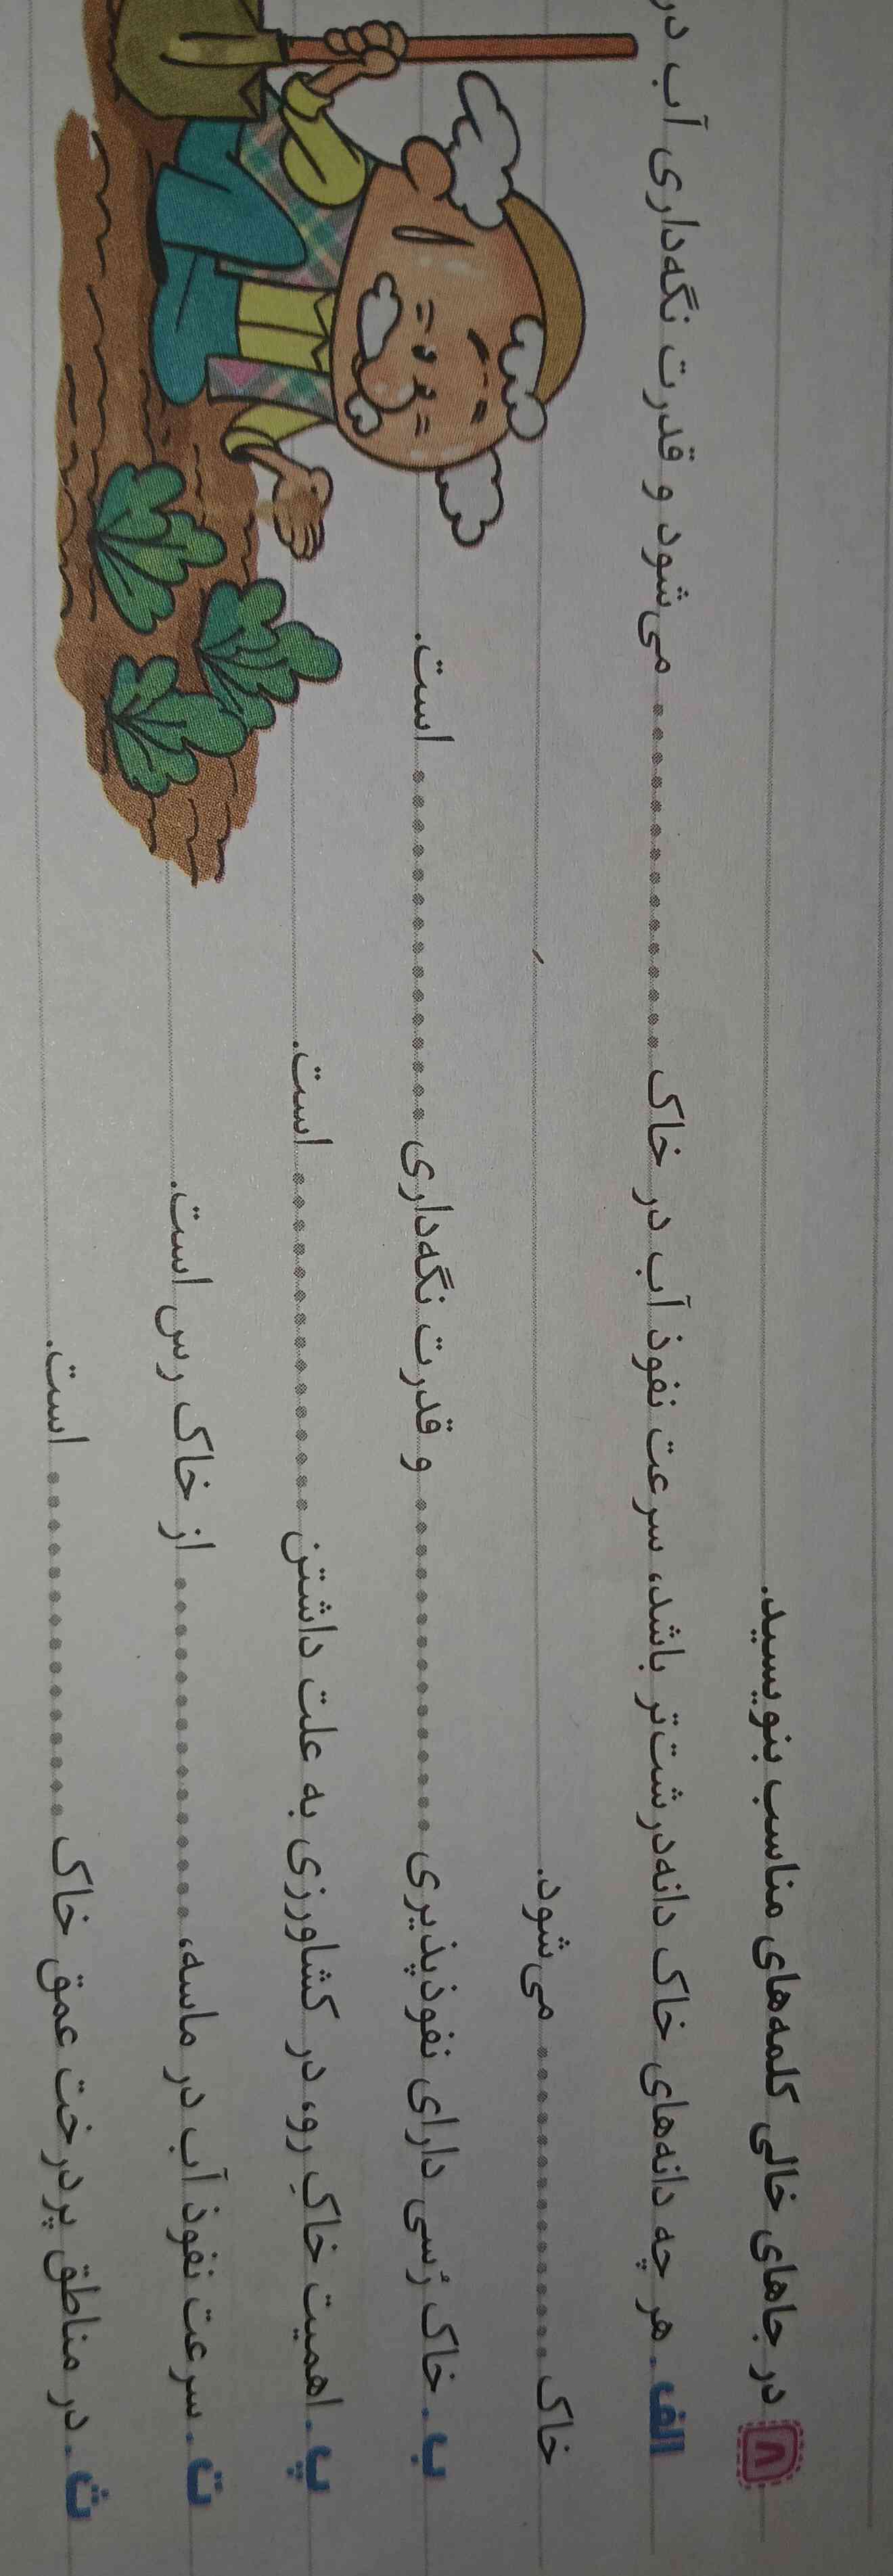 ۸ در جاهای خالی کلمه‌های مناسب بنویسید.
الف. هر چه دانه‌های خاک دانه‌درشت‌تر باشد، سرعت نفوذ آب در خاک .................... می‌شود و قدرت نگه‌داری آب در
خاک .................... می‌شود.
ب. خاک رُسی دارای نفوذپذیری .................... و قدرت نگه‌داری .................... است.
پ. اهمیت خاکِ رو، در کشاورزی به علت داشتن .................... است.
ت. سرعت نفوذ آب در ماسه، .................... از خاک رس است.
ث. در مناطق پردرخت عمق خاک .................... است.